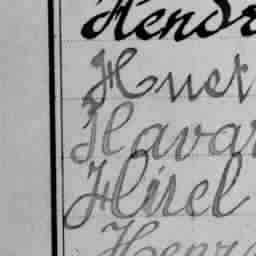 Hendr
Hust
Havar
Hirel
Henr